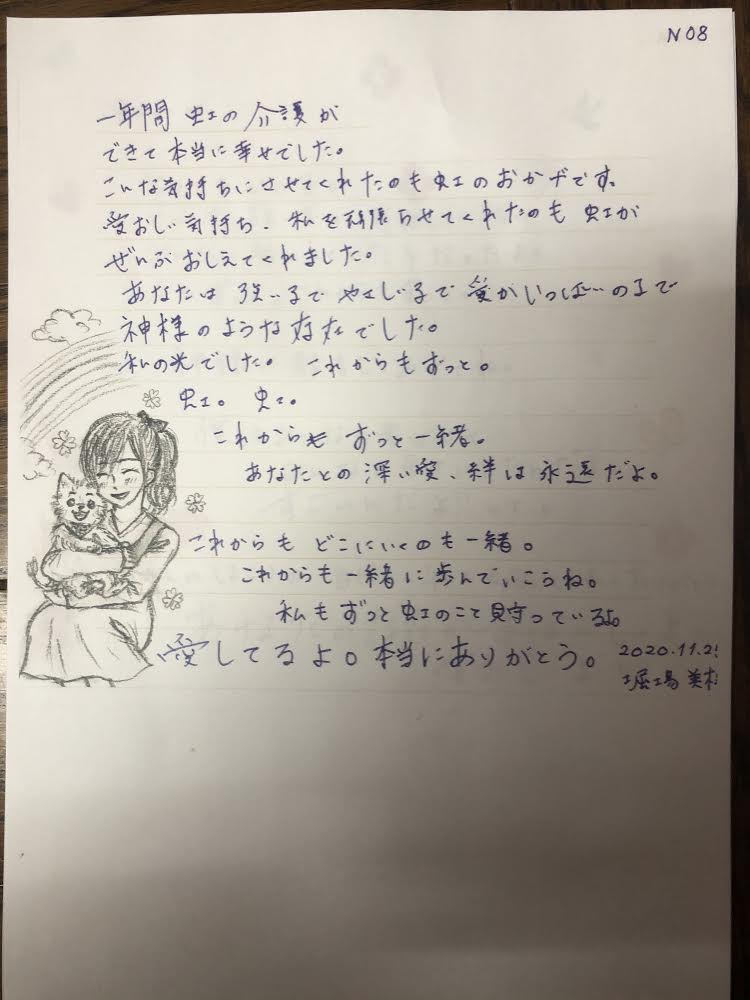 N08
一年間 虹の介護が
できて本当に幸せでした。
こんな気持ちにさせてくれたのも虹のおかげです。
愛おしい気持ち、私を頑張らせてくれたのも 虹が
ぜんぶおしえてくれました。
あなたは 強い子で やさしい子で 愛がいっぱいの子で
神様のような存在でした。
私の光でした。 これからもずっと。
虹。 虹。
これからも ずっと一緒。
あなたとの 深い愛、絆は 永遠だよ。
これからも どこにいくのも一緒。
これからも一緒に歩んでいこうね。
私も ずっと虹のこと見守っているよ。
愛してるよ。本当にありがとう。
2020.11.2
堀場 美